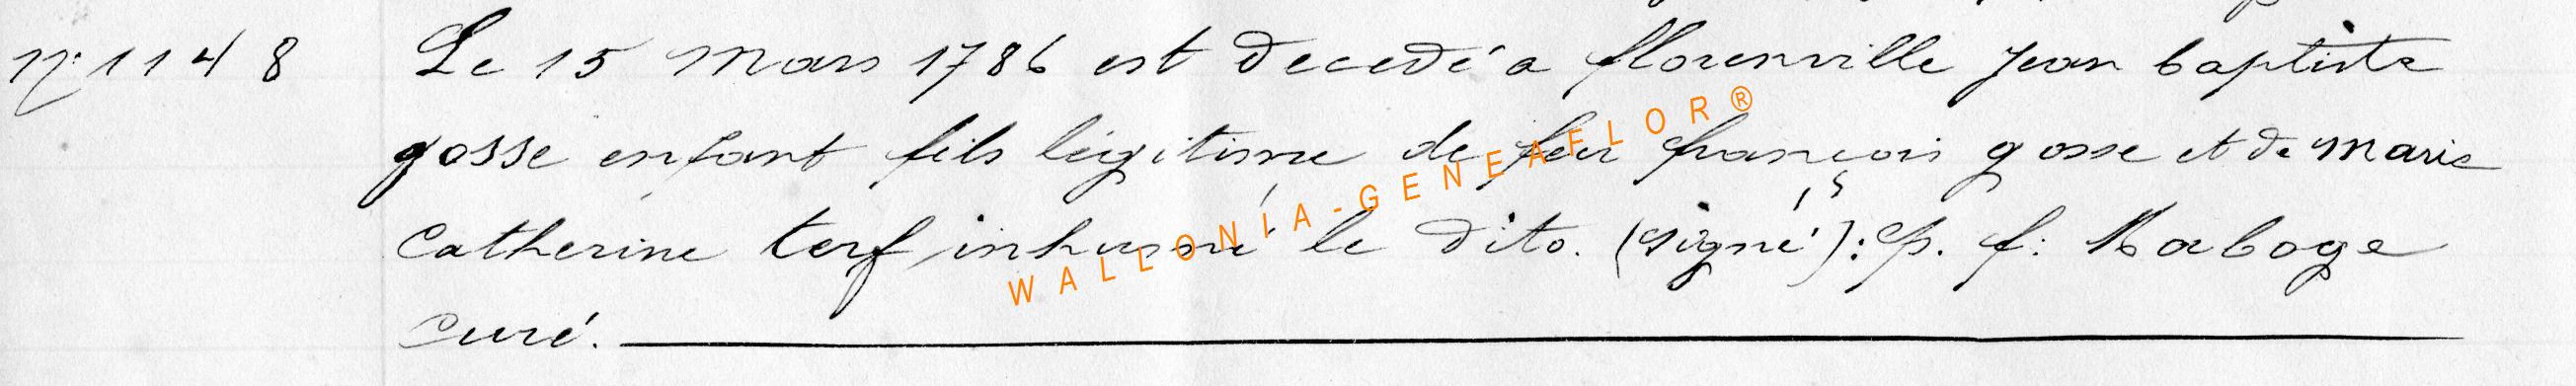 N° 1148 Le 15 Mars 1786 est decedé a florenville jean baptiste
gosse enfant fils légitime de feu françois gosse et de Marie
Catherine terf inhumé le dito. (signé): p. f: Maboge
curé.
WALLONIA-GENEAFLOR®